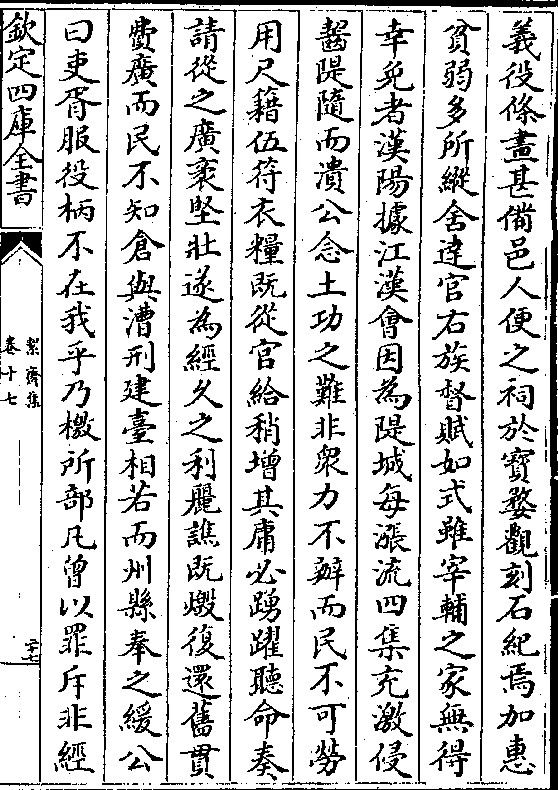 義役條畫甚備邑人便之祠於寳婺觀刻石紀焉加惠
貧弱多所縱舍達官右族督賦如式雖宰輔之家無得
幸免者漢陽據江漢會因為隄城每漲流四集充激侵
齧隄隨而潰公念土功之難非衆力不辦而民不可勞
用尺籍伍符衣糧既從官給稍增其庸必踴躍聽命奏
請從之廣袤堅壯遂為經久之利麗譙既燬復還舊貫
費廣而民不知倉與漕刑建臺相若而州縣奉之緩公
曰吏胥服役柄不在我乎乃檄所部凡曾以罪斥非經
欽定四庫全書
絜齋集
卷十七
二十七